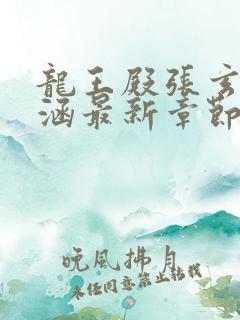 龍王殿張玄
涵最新章節
晚風拂月
未任同意禁止转载